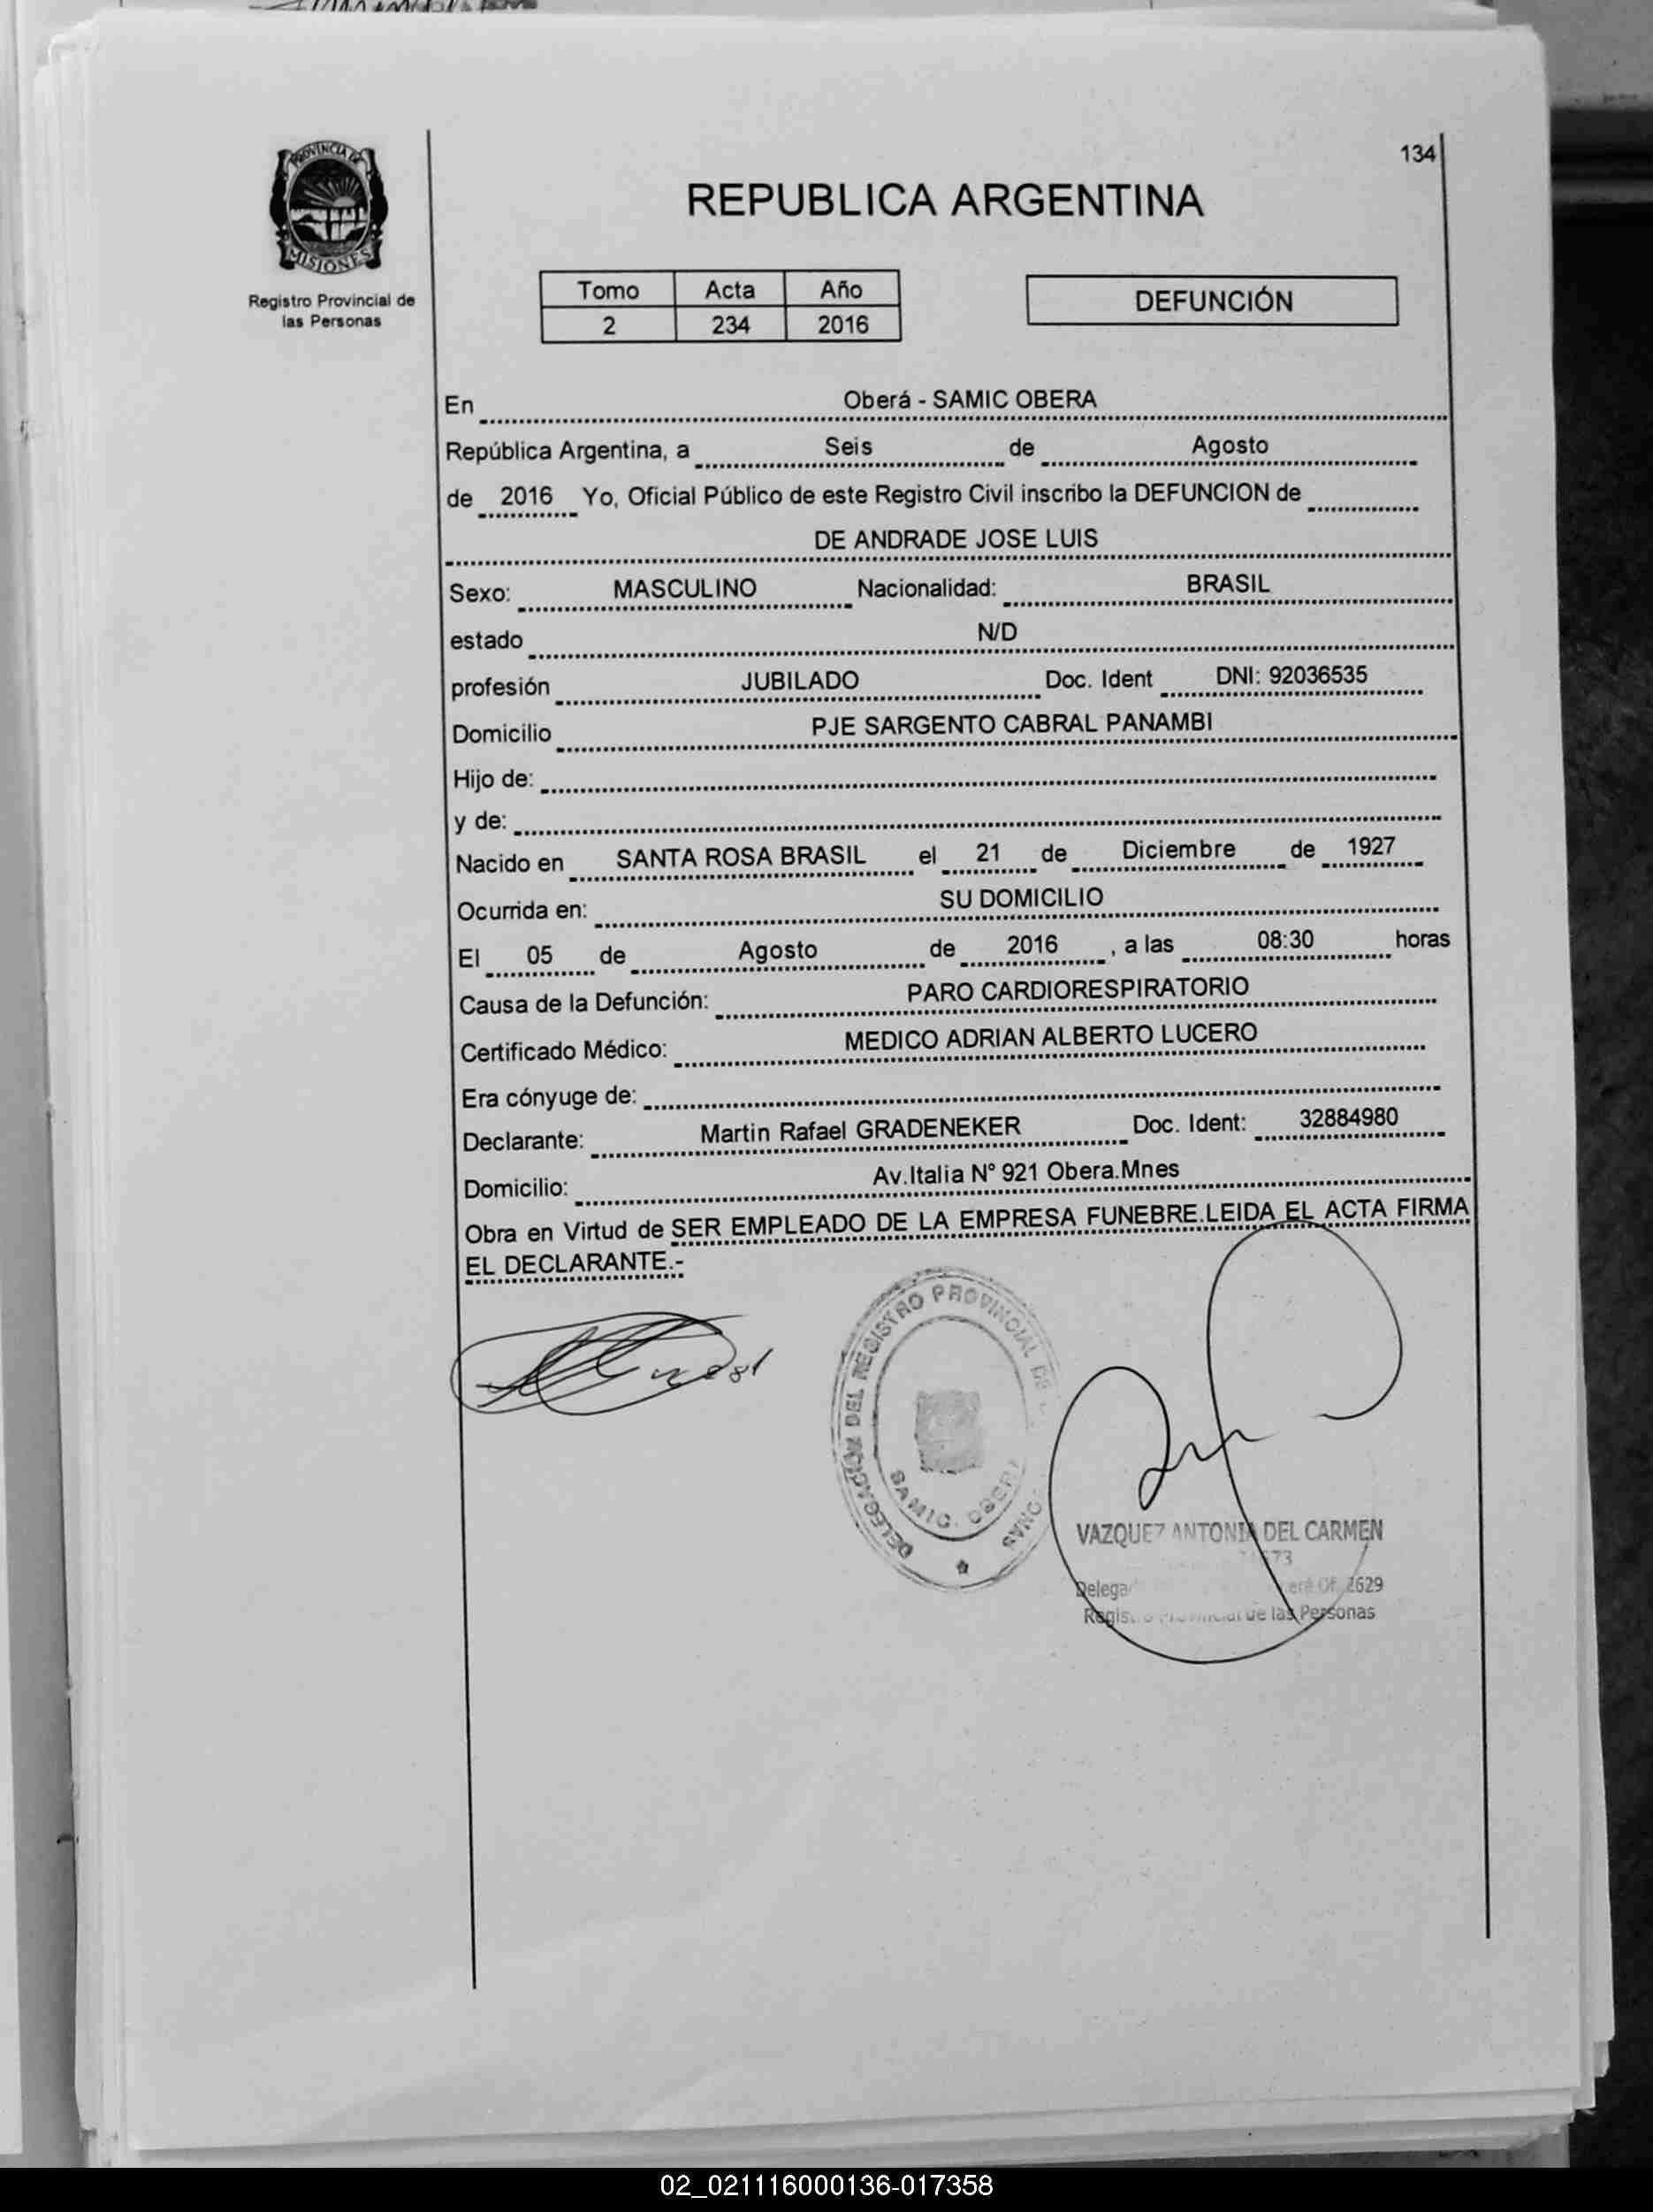 134
PROVINCIA DE
MISIONES
Registro Provincial de
las Personas
REPUBLICA ARGENTINA
Tomo Acta Año
2 234 2016
DEFUNCIÓN
En Oberá - SAMIC OBERA
República Argentina, a Seis de Agosto
de 2016 Yo, Oficial Público de este Registro Civil inscribo la DEFUNCION de
DE ANDRADE JOSE LUIS
Sexo: MASCULINO Nacionalidad: BRASIL
estado N/D
profesión JUBILADO Doc. Ident DNI: 92036535
Domicilio PJE SARGENTO CABRAL PANAMBI
Hijo de:
y de:
Nacido en SANTA ROSA BRASIL el 21 de Diciembre de 1927
Ocurrida en: SU DOMICILIO
El 05 de Agosto de 2016, a las 08:30 horas
Causa de la Defunción: PARO CARDIORESPIRATORIO
Certificado Médico: MEDICO ADRIAN ALBERTO LUCERO
Era cónyuge de:
Declarante: Martin Rafael GRADENEKER Doc. Ident: 32884980
Domicilio: Av.Italia N° 921 Obera.Mnes
Obra en Virtud de SER EMPLEADO DE LA EMPRESA FUNEBRE.LEIDA EL ACTA FIRMA
EL DECLARANTE.-
DELEGACION DEL REGISTRO PROVINCIAL DE
SAMIC.
VAZQUEZ ANTONIA DEL CARMEN
2629
de las Personas
02_021116000136-017358